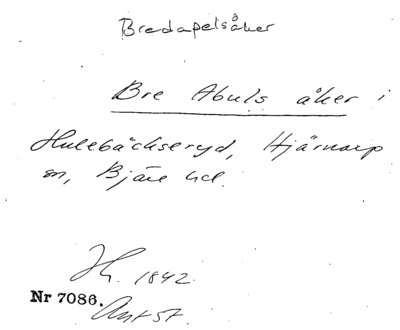 Bredapelsåker
Bre Abuls åker i
Hulebäckseryd, Hjärnarp
sn, Bjäre hd.
Jh. 1842.
Nr 7086.
Ant st.